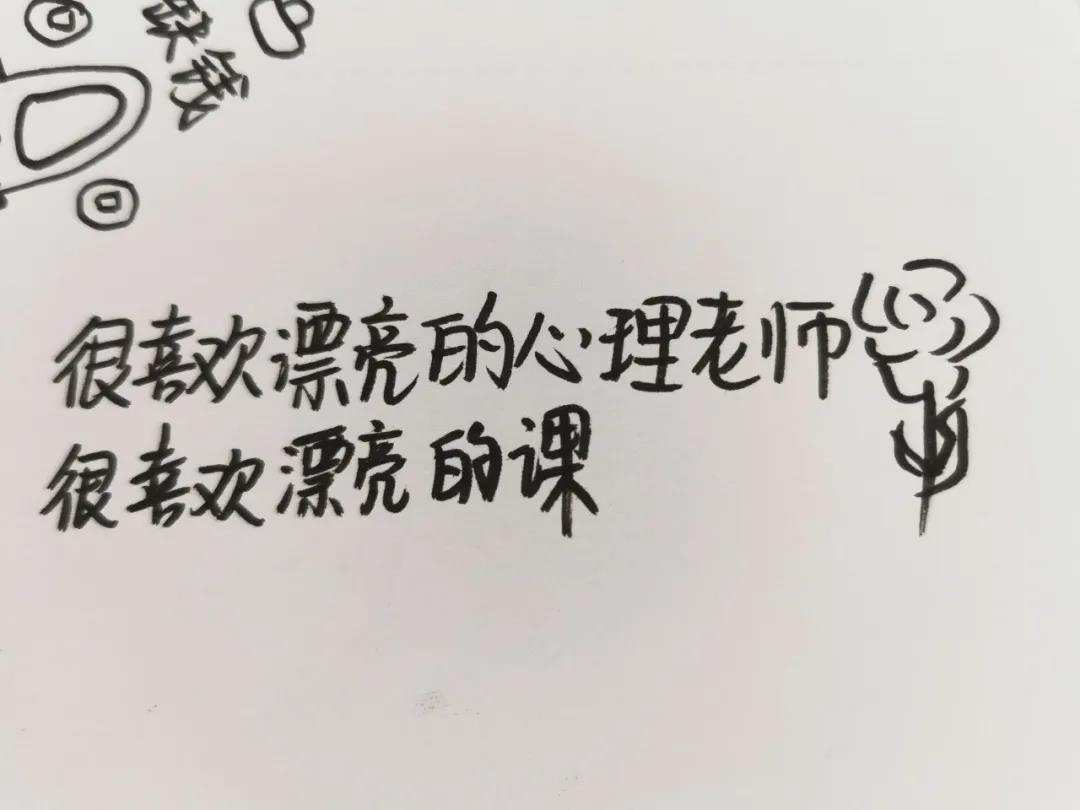 缺钱
很喜欢漂亮的心理老师
很喜欢漂亮的课